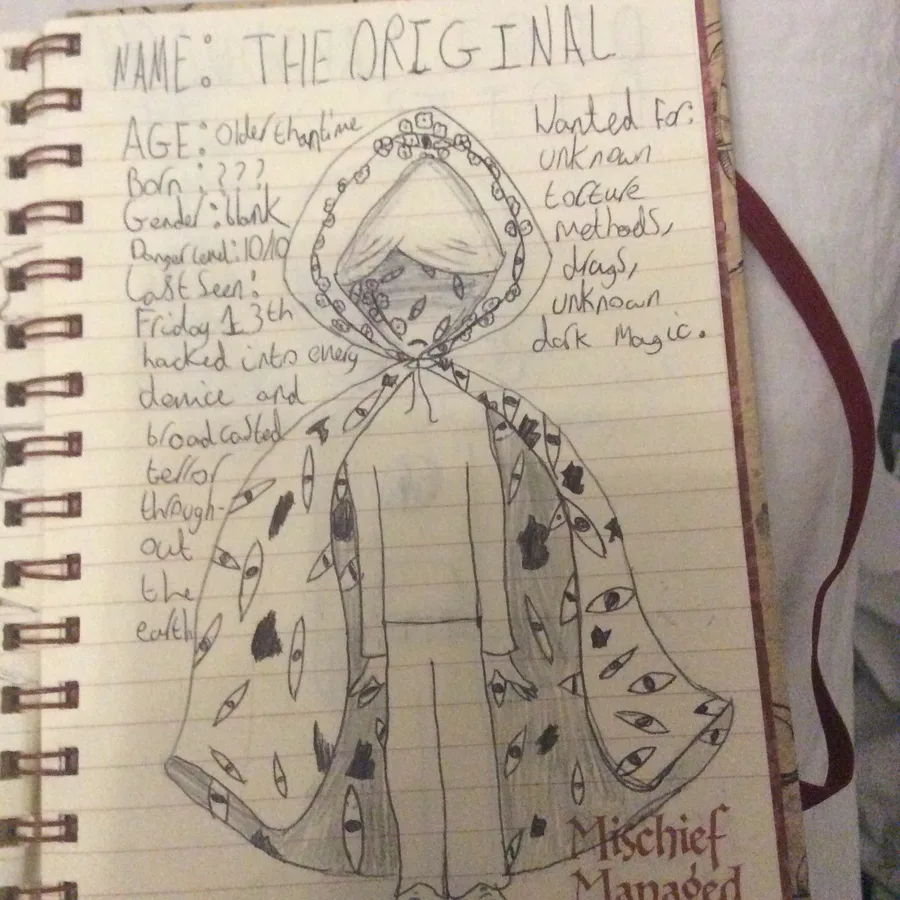 NAME: THE ORIGINAL
AGE: Older than time
Born: ???
Gender: blank
Danger Level: 10/10
Last Seen:
Friday 13th
hacked into every
device and
broadcasted
terror
through-
out
the
earth
Wanted For:
unknown
torture
methods,
drags,
unknown
dark Magic.
Mischief
Managed